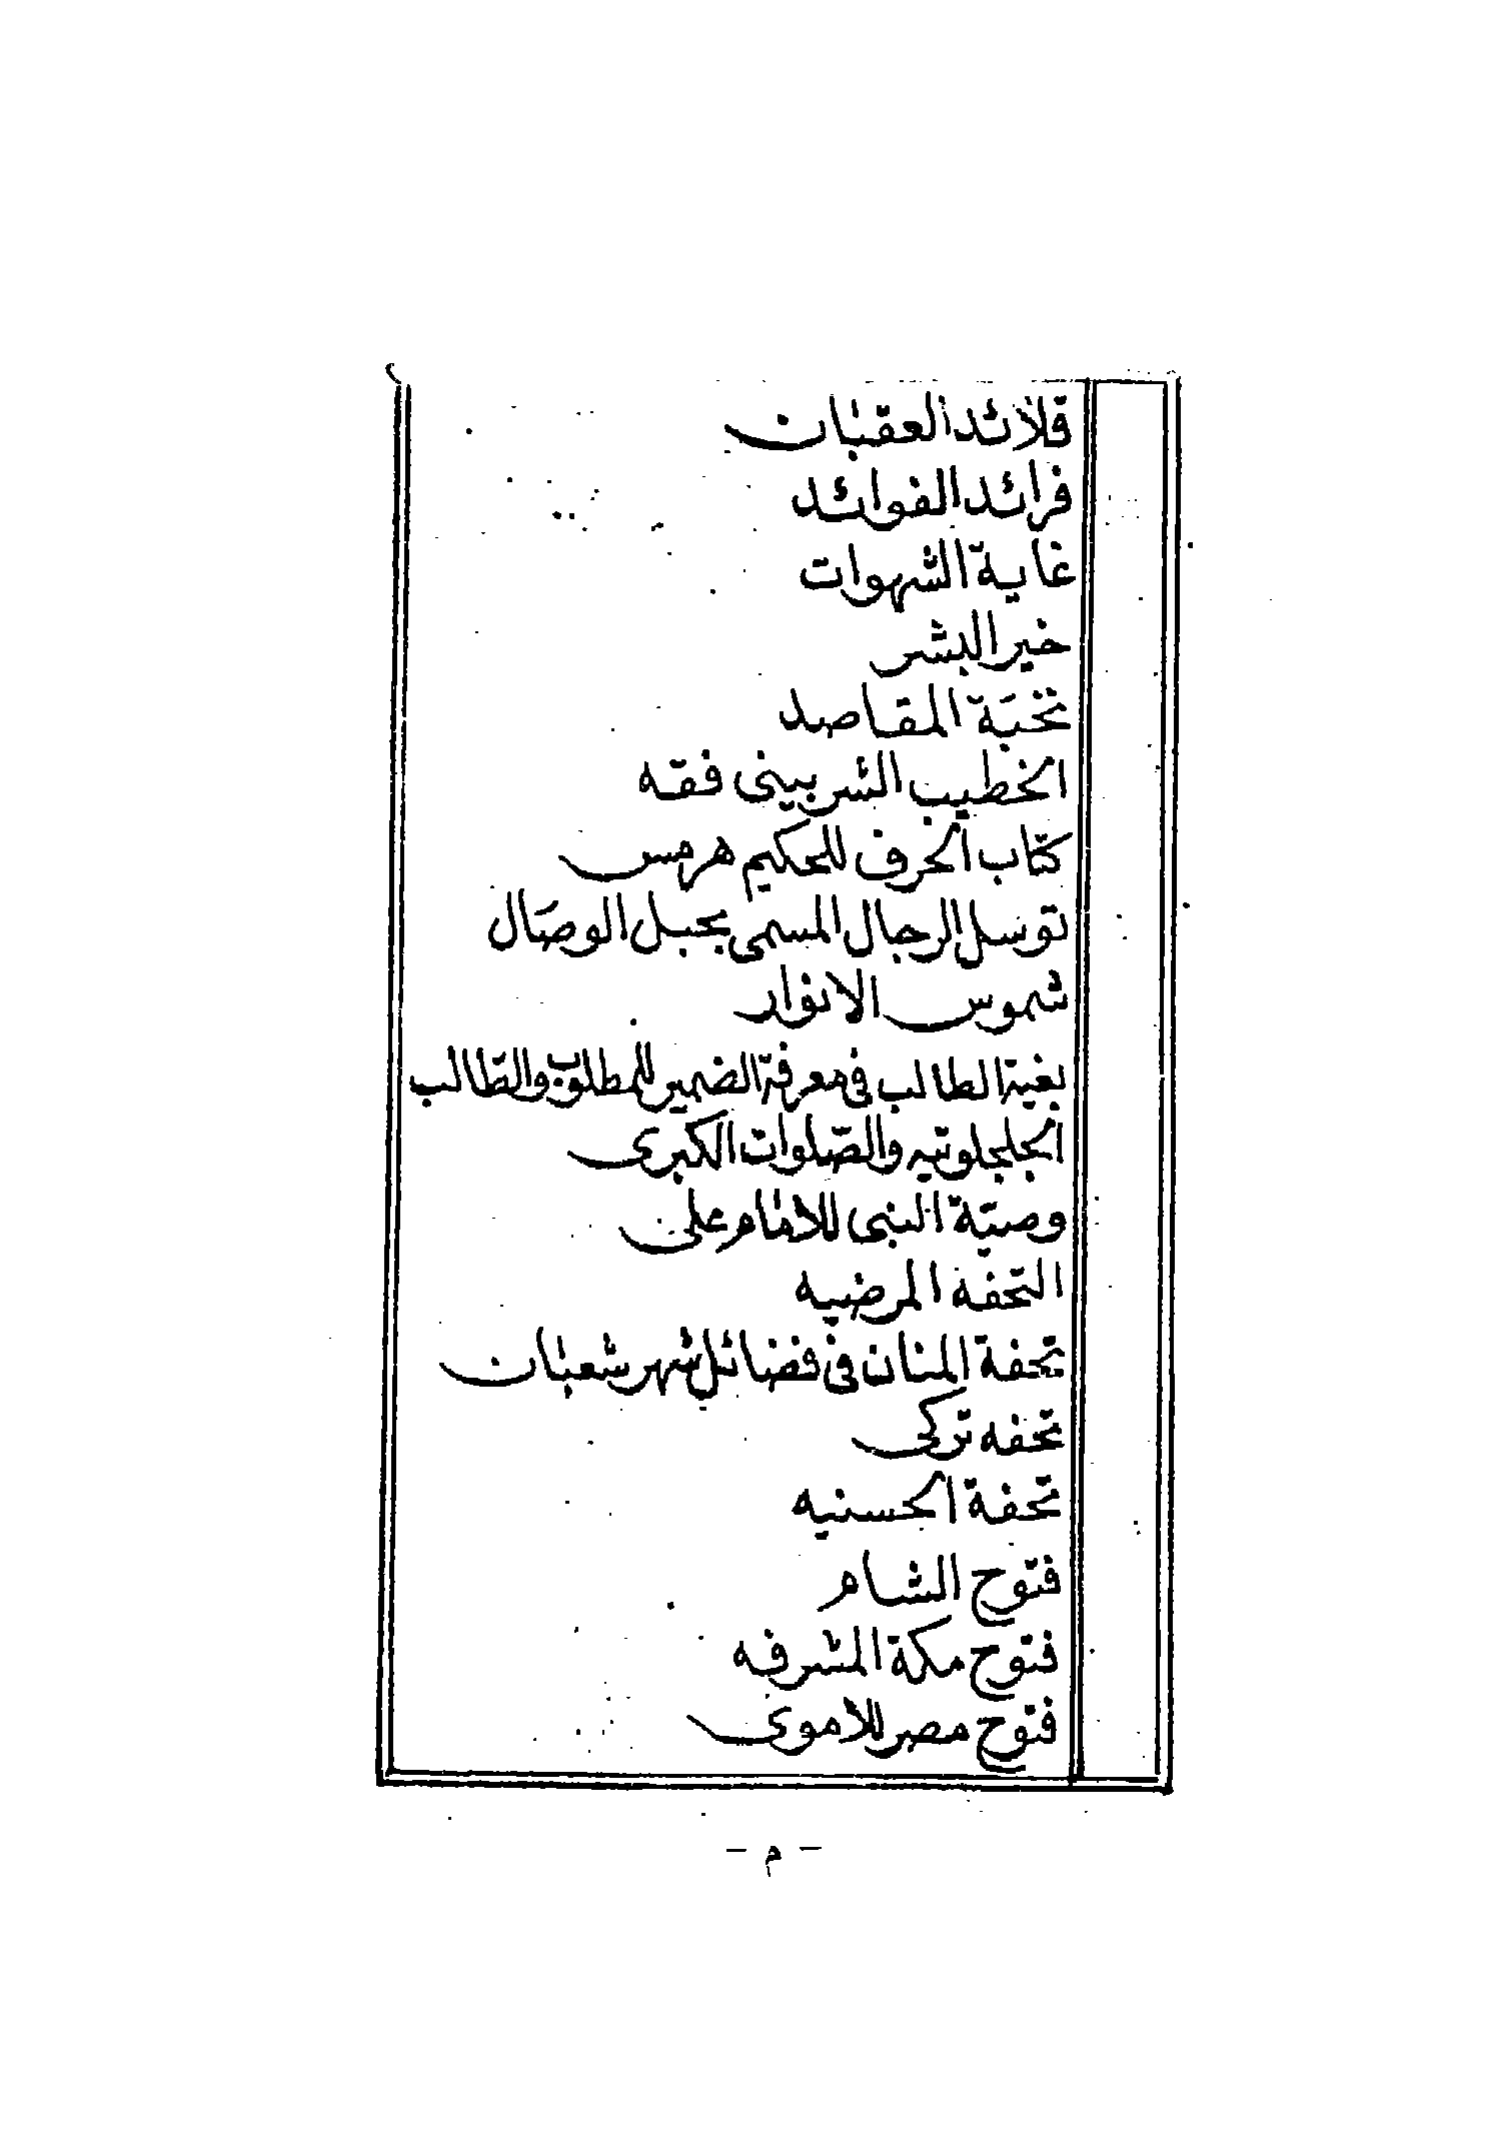 قلائد العقبان
فرائد الفوائد
غاية الشهوات
خير البشر
نخبة المقاصد
الخطيب الشربيني فقه
كتاب الحرف للحكيم هرمس
توسل الرجال المسمى بحبل الوصال
شموس الانوار
بغية الطالب في معرفة الضمير للمطلوب والطالب
الجلجلوتيه والصلوات الكبرى
وصية النبي للامام على
التحفة المرضيه
تحفة المنان في فضائل شهر شعبان
تحفه تركى
تحفة الحسنيه
فتوح الشام
فتوح مكة المشرفه
فتوح مصر للاموى
- م -